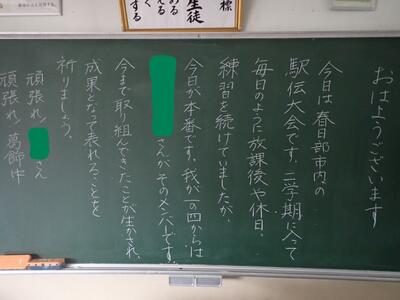 標
生徒
える
く
する
おはようございます
今日は春日部市内の
駅伝大会です。二学期に入って
毎日のように放課後や休日、
練習を続けていましたが、
今日が本番です。我が一の四からは
さんがそのメンバーです。
今まで取り組んできたことが生かされ、
成果となって表れることを
祈りましょう。
頑張れ！さん
頑張れ！葛飾中